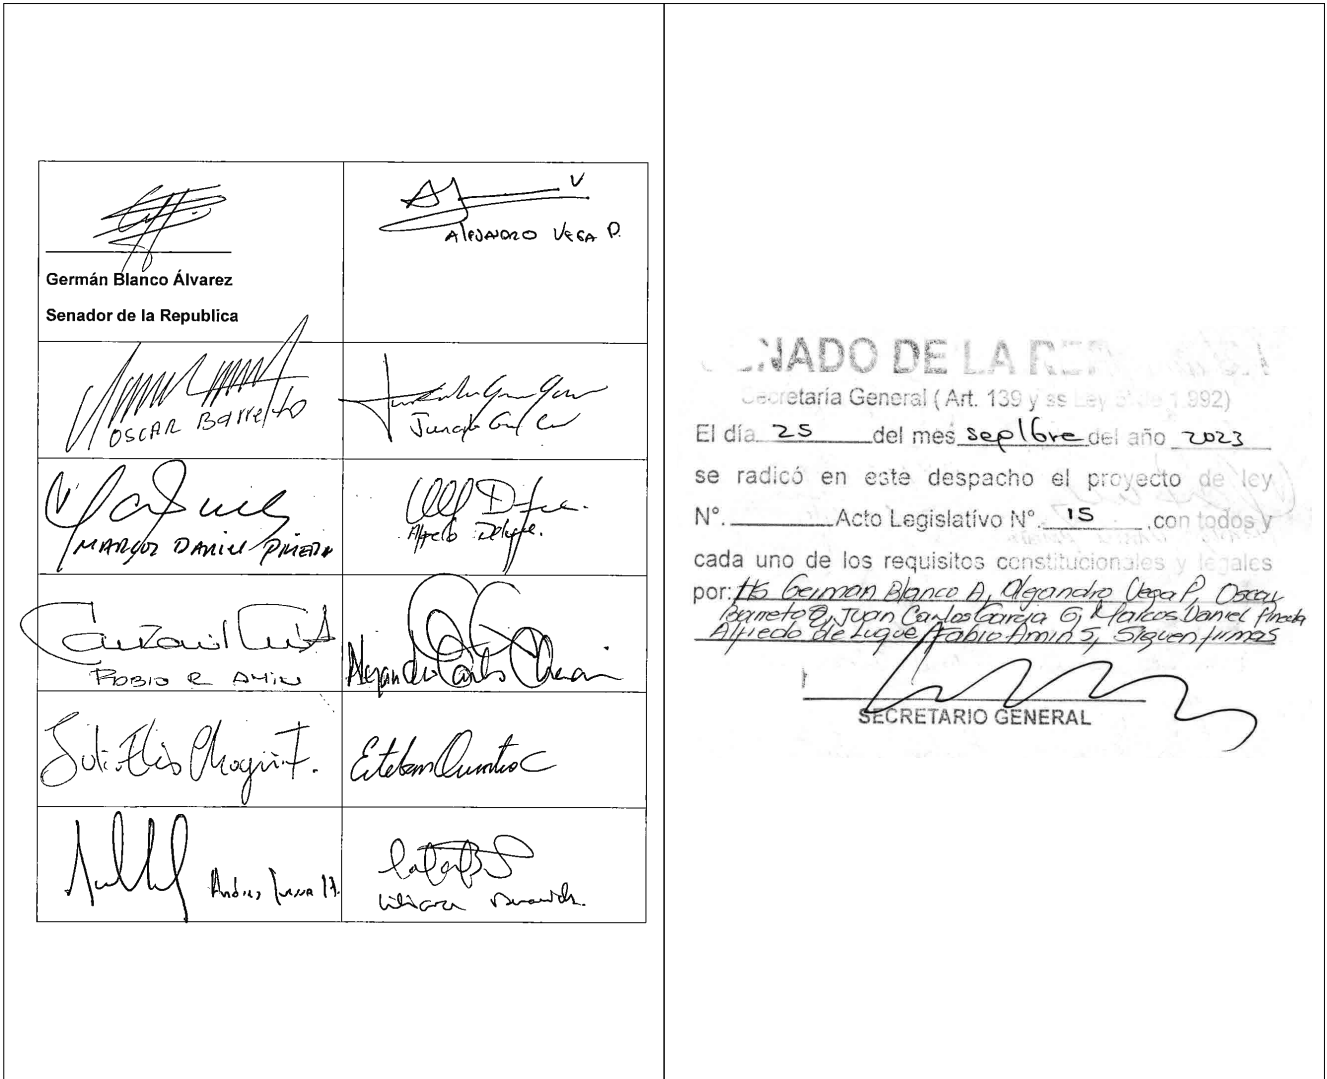 ALEJANDRO VEGA P.
Germán Blanco Álvarez
Senador de la Republica
OSCAR Barreto
MARCOS DANIEL PINEDA
Alfredo Deluque.
FABIO R AMIN
Alejandro Carlos Chacón
Esteban Quintero C
SENADO DE LA REPUBLICA
Secretaría General ( Art. 139 y ss Ley 5ª de 1.992)
El día 25 del mes septbre del año 2023
se radicó en este despacho el proyecto de ley
N°. Acto Legislatívo N°. 15 ,con todos y
cada uno de los requisitos constitucionales y legales
por: Hs German Blanco A, Alejandro Vega P, Oscar
Barreto Q, Juan Carlos Garcia G, Marcos Daniel Pineda
Alfredo de Luque, Fabio Amin S, Siguen firmas
SECRETARIO GENERAL